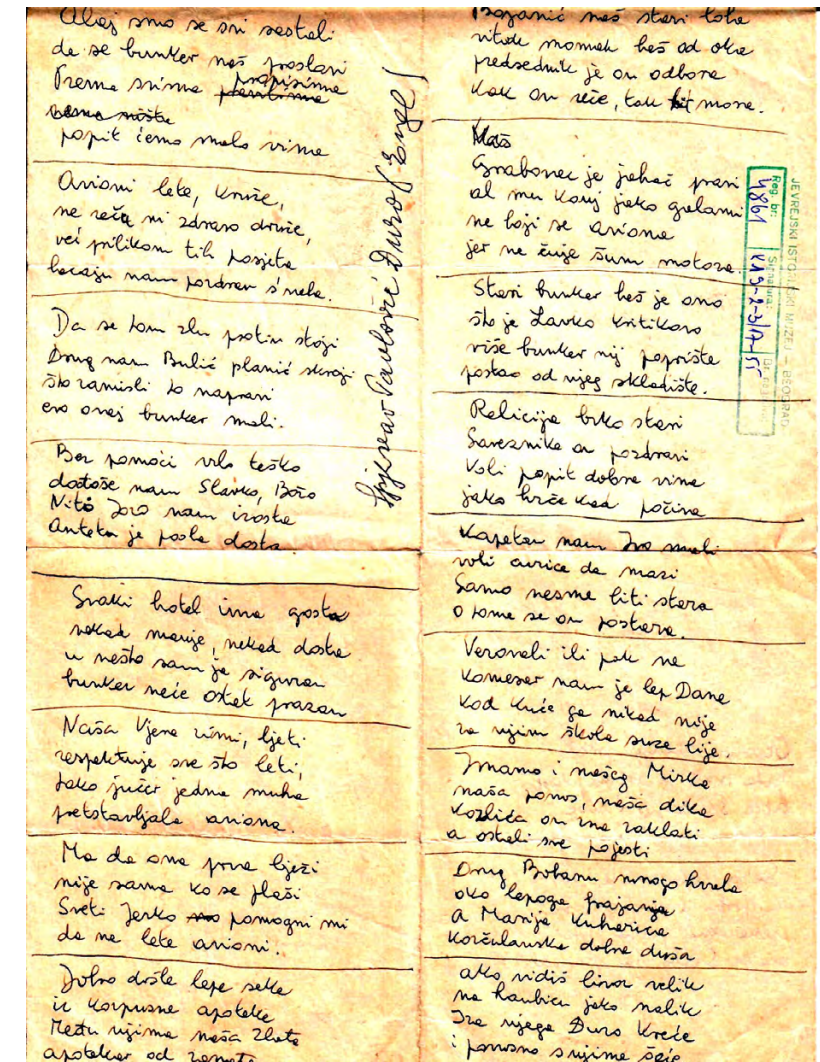 Ovaj smo se svi sastali
da se bunker naš proslavi
Prema svima propisima
popit ćemo malo vina
Avioni lete, kruže,
ne reču ni zdravo druže,
već prilikom tih posjeta
bacaju nam pozdrav s'neba.
Da se tom zlu protiv stoji
Drug nam Bulić planić skroji
što zamisli to napravi
evo ovaj bunker mali.
Bez pomoći vrlo teško
dođoše nam Slavko, Božo
Nitô Jozo nam izosta
Anteka je posla dosta.
Svaki hotel ima gosta
nekad manje, nekad dosta
u nešto sam je siguran
bunker neće ostat prazan
Naša Vjena zimi, ljeti
respektuje sve što leti,
tako jučer jedna muha
pretstavljala aviona.
Ma da ona prva bježi
nije sama ko se plaši
Sveti Jerko pomogni mi
da ne lete avioni.
Dobro došle lepe seke
iz korpusne apoteke
Među njima naša Zlata
apotekar od zanata
Spjevao Pavlović Đuro Engl
Bojanić naš stari
vitak momak baš od oka
predsednik je on odbora
kak on reče, tak bit mora.
Grabovac je jahač pravi
al mu konj jako galami
ne boji se aviona
jer ne čuje šum motora.
Stari bunker baš je ono
što je Lavko kritikovo
više bunker nij poprište
postao od njeg skladište.
Relicija brko stari
Saveznike on pozdravi
Voli popit dobra vina
jako hrče kad počina
Kapetan nam Ivo mali
voli curice da mazi
Samo nesme biti stara
o tome se on postara.
Verovali ili pak ne
komesar nam je lep Dane
kod kuće ga nikad nije
za njim škola suze lije.
Imamo i našeg Mirka
naša ponos, naša dika
Kozlića on zna zaklati
a ostali sve pojesti
Drug Bobanu mnogo hvala
oko lepoga
a Marija Kuharica
Korčulanska dobra duša
ako vidiš binor velik
na haubicu jako nalik
Iza njega Đuro kreće
i ponosno s njime šeće
JEVREJSKI ISTORIJSKI MUZEJ – BEOGRAD
Reg. br.
4861
Signatura: